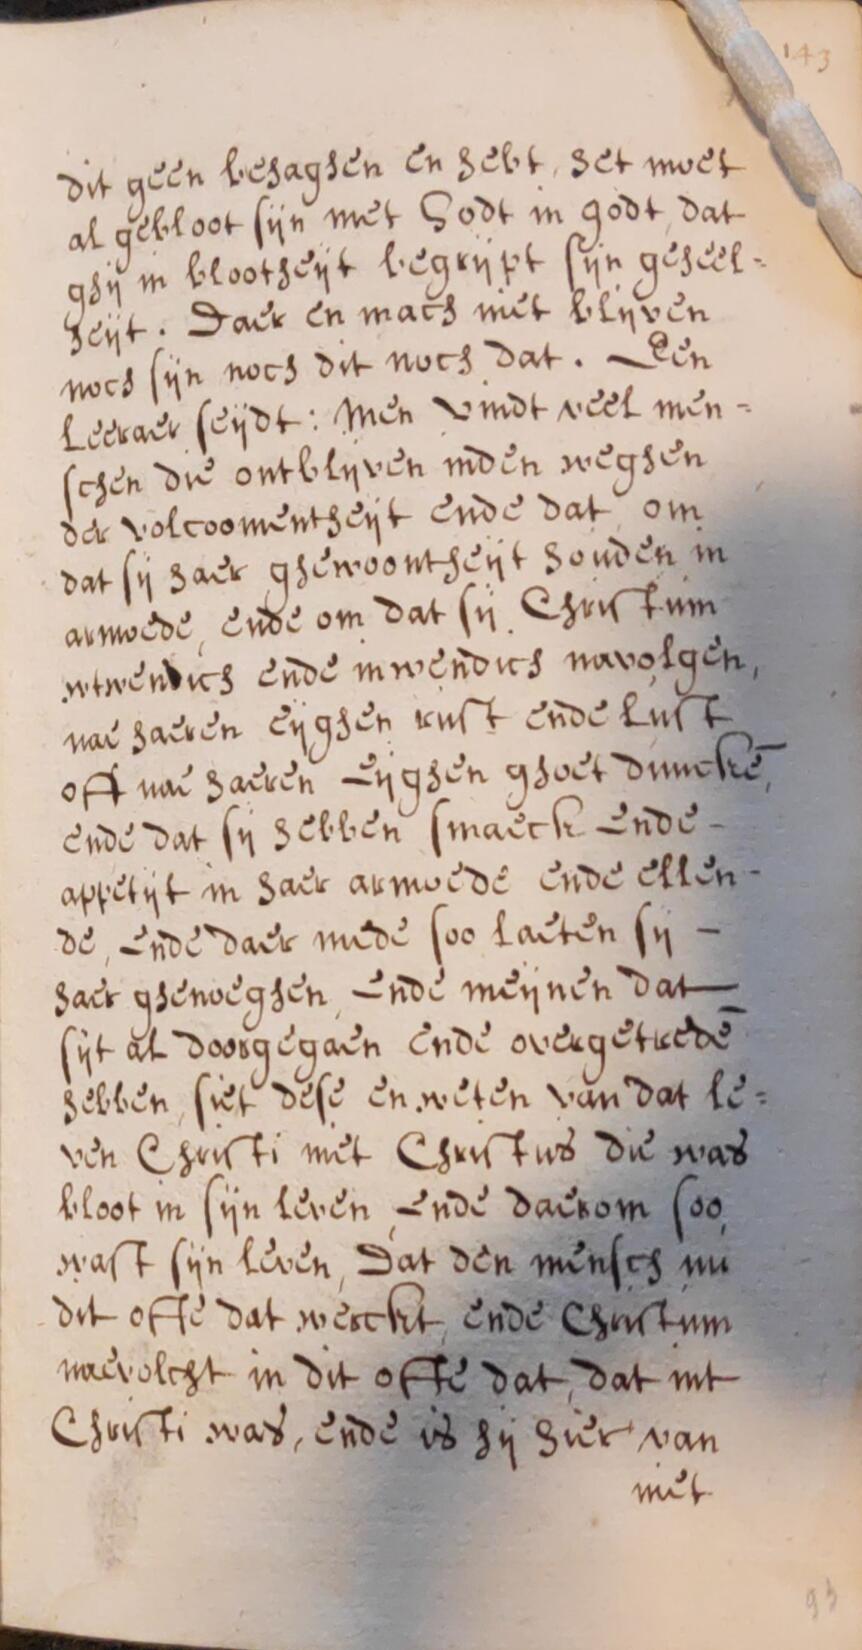 143
dit geen behaghen en hebt, het moet
al gebloot sijn met Godt in godt, dat
ghij in blootheijt begrijpt sijn geheel-
heijt. Daer en mach niet blijven
noch sijn noch dit noch dat. Een
Leeraer seijdt: Men vindt veel men-
schen die ontblijven inden weghen
der volcoomentheijt ende dat, om
dat sij haer ghewoontheijt houden in
armoede, ende om dat sij Christum
wtwendich ende inwendich navolgen,
nae haeren eijghen rust ende lust
off nae haeren eijghen ghoet duncke͂,
ende dat sij hebben smaeck ende
appetijt in haer armoede ende ellen-
de, ende daer mede soo laeten sij
haer ghenoeghen, ende meijnen dat
sijt al doorgegaen ende overgetrede͂
hebben, siet dese en weten van dat le-
ven Christi niet Christus die was
bloot in sijn leven, ende daerom soo
wast sijn leven, Dat den mensch nu
dit offe dat werckt, ende Christum
naevolcht in dit offe dat, dat int
Christi was, ende is hij hier van
niet
93